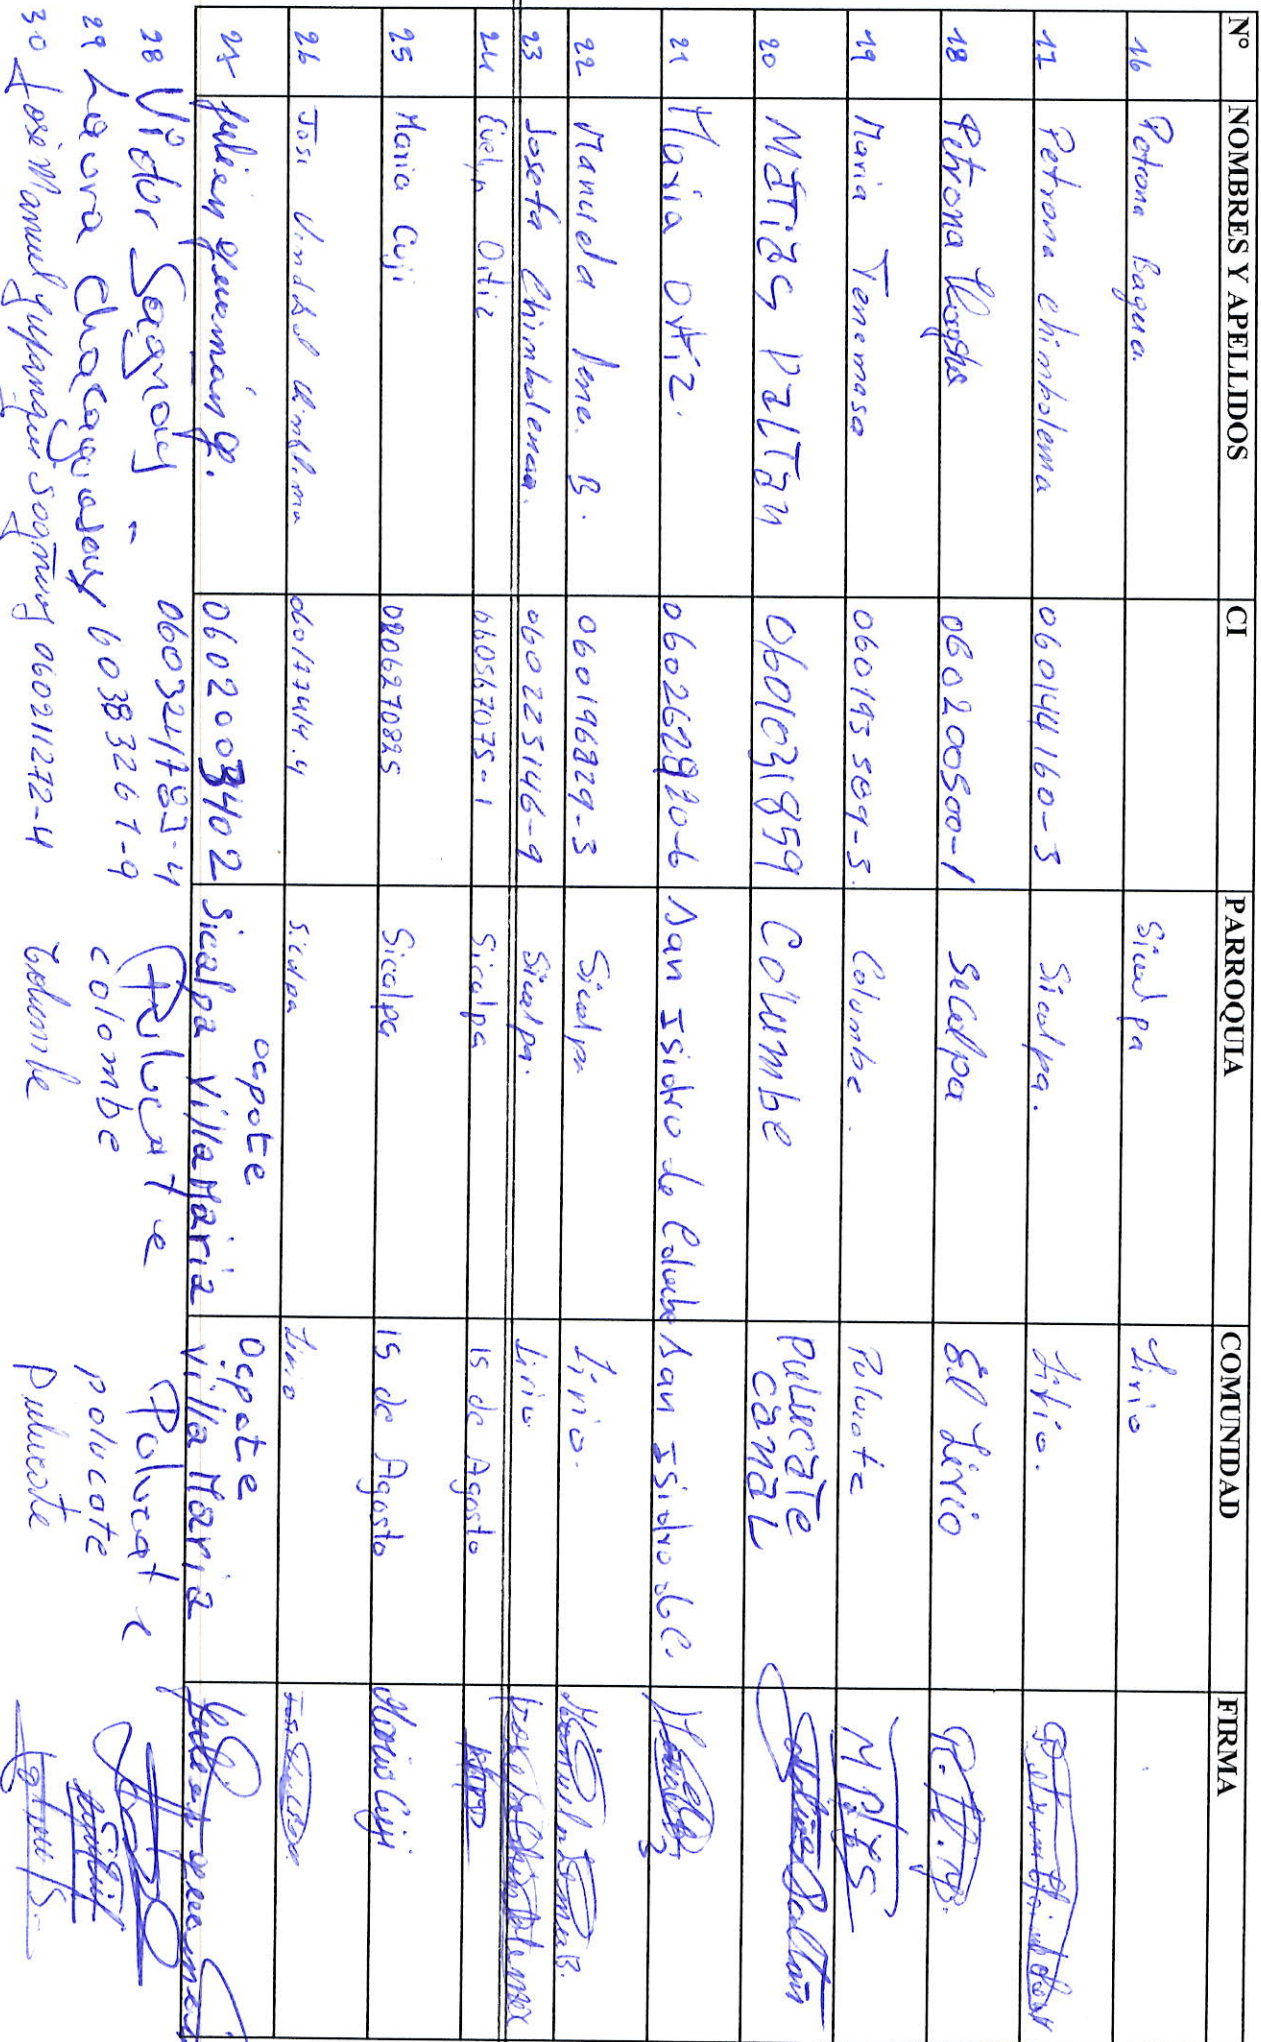 N° NOMBRES Y APELLIDOS CI PARROQUIA COMUNIDAD FIRMA
16 Petrona Bagua. Sicalpa Lirio
17 Petrona Chimbolema 060144160-3 Sicalpa. Lirio.
18 Petrona 060200500-1 Secalpa El Lirio
19 Maria Tenemasa 060195509-3. Columbe. Pulucate
20 MaTias PalTan 0601031859 Columbe Pulucate canal
21 Maria Ortiz. 060262820-6 San Isidro de Columbe San Isidro de C.
22 Manuela B. 060196829-3 Sicalpa Lirio.
23 Josefa Chimbolema. 060225146-9 Sicalpa. Lirio
24 Evelyn Ortiz 060567075-1 Sicalpa 15 de Agosto
25 Maria Cuji 0206270825 Sicalpa 15 de Agosto Maria Cuji
26 José Sicalpa Lirio
ocpote Ocpote
27 Julien guaman g. 0602003402 Sicalpa Villa Maria Villa Maria
28 Vidur Sagñay Pulucate Polucate
29 Laura chacaguasay 60383261-9 colombe polucate
30 José Manuel Yupanqui Sagñay 060211272-4 Columbe Pulucate